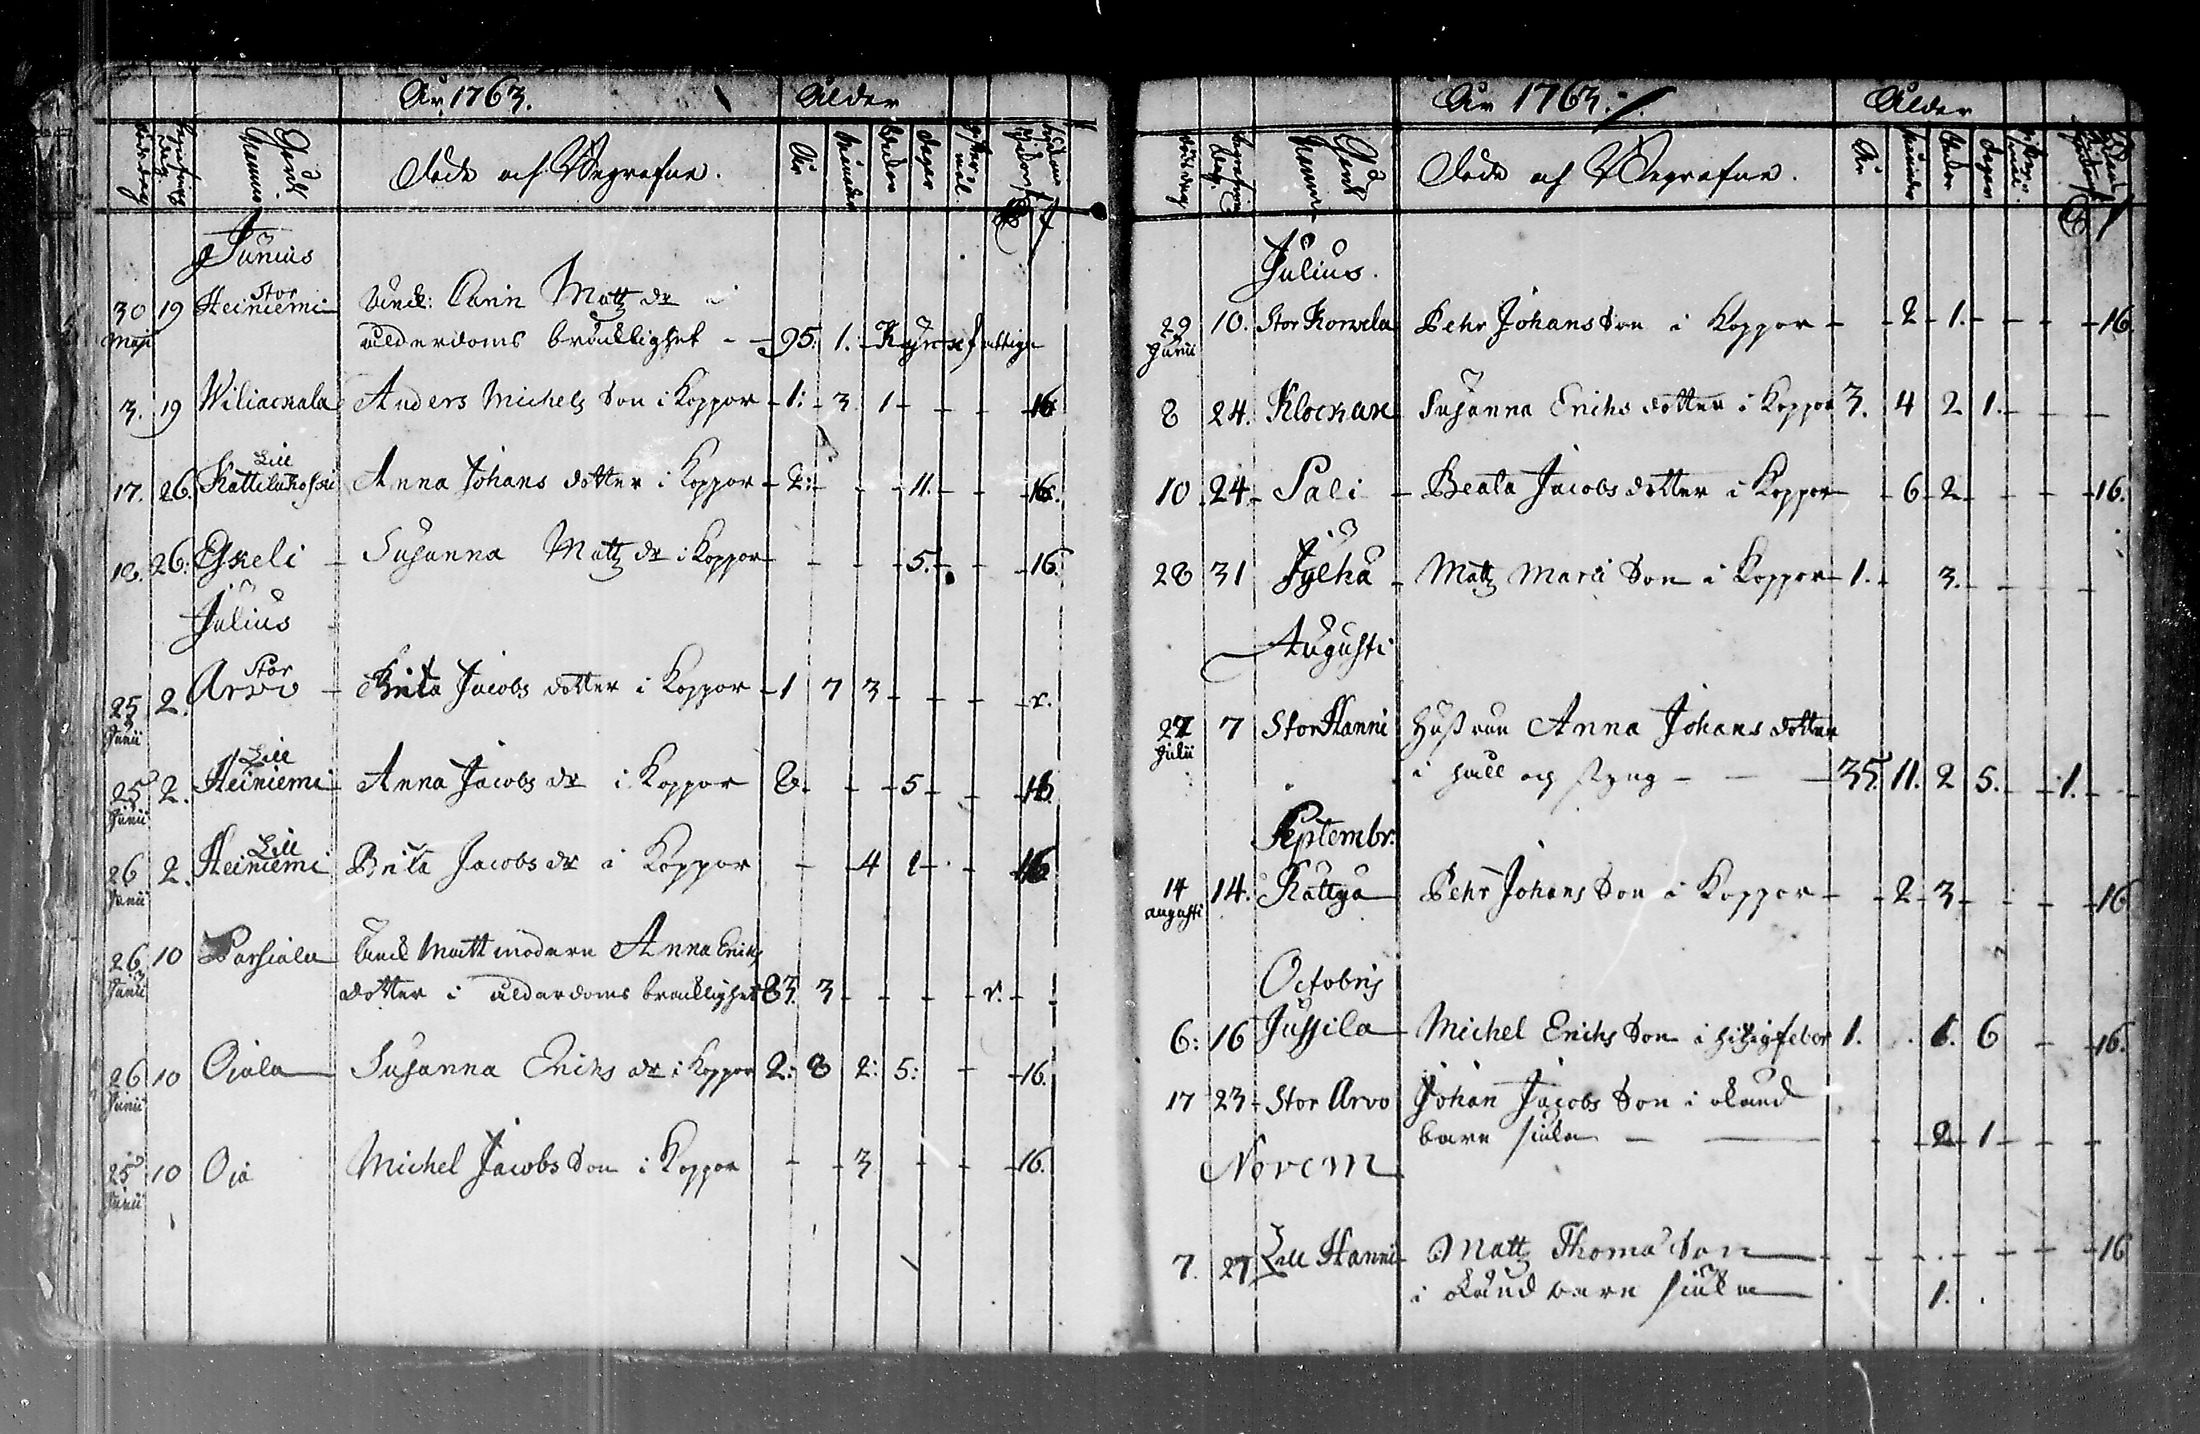 År 1763. Ålder
Dödedag Begrafnings dag Gårds Namn Döde och Begrafne. År Månader Wekor Dagar
Junius
30 Maji 19 Stor Heiniemi Enck: Carin Matz dr i
ålderdoms bräcklighet - - 95. 1. - Kyrcksfattige
3. 19 Wiliackala Anders Michels Son i Koppor - 1: - 3. 1 - - - 16
17. 26. Lill Kattilukoski Anna Johans dotter i Koppor - 2: - - - 11. - - 16.
18. 26: Eskeli - Susanna Matz dr i Koppor - - - 5. - - 16.
Julius
25 Junii 2. Stor Arvo - Brita Jacobs dotter i Koppor - 1 7 3 - - - r.
25 Junii 2. Lill Heiniemi Anna Jacobs dr i Koppor 8. - - - 5 - - 16
26 Junii 2. Lill Heiniemi Brita Jacobs dr i Koppor - 4 1 - - 16
26 Junii 10 Parsiala Enck Matt modren Anna Erichs
dotter i ålderdoms bräcklighet 83. 3 - - - - r. - -
26 Junii 10 Ojala Susanna Erichs dr i Koppor 2: 8 2: 5: - - 16.
25 Junii 10 Oja Michel Jacobs Son i Koppor - - 3 - - - 16.
År 1763. Ålder
Dödedag Begrafnings dag Gårds Namn Döde och Begrafne. År Månader Wekor Dagar
Julius.
29 Junii 10. Stor Korwela Pehr Johans Son i Koppor - - 2 - 1. - - - - 16.
8 24. Klockare Susanna Erichs dotter i Koppor 3. 4 2 1. - - -
10 24 - Pali - Beata Jacobs dotter i Koppor - 6 - 2 - - - - 16.
28 31 Jylhä - Matz Mariä Son i Koppor - 1. - 3. - - - -
Augusti
27 Julii 7 Stor Hanni Hustrun Anna Johans dotter
i håll och styng - - - 35. 11. 2 5. - - 1. - -
Septembr.
14 augusti 14. Kattya Pehr Johans Son i Koppor - - 2 - 3 - - - - 16
Octobris
6: 16 Jussila Michel Erichs Son i hitzigfeber 1. . 1. 6 - - 16.
17 23 - Stor Arvo Johan Jacobs Son i okänd
barn siuka - - - 2 - 1 - - -
Novem
7. 27 Lill Hanni - Matz Thomæ Son - - - - - - - 16
i okänd barn siuka 1.